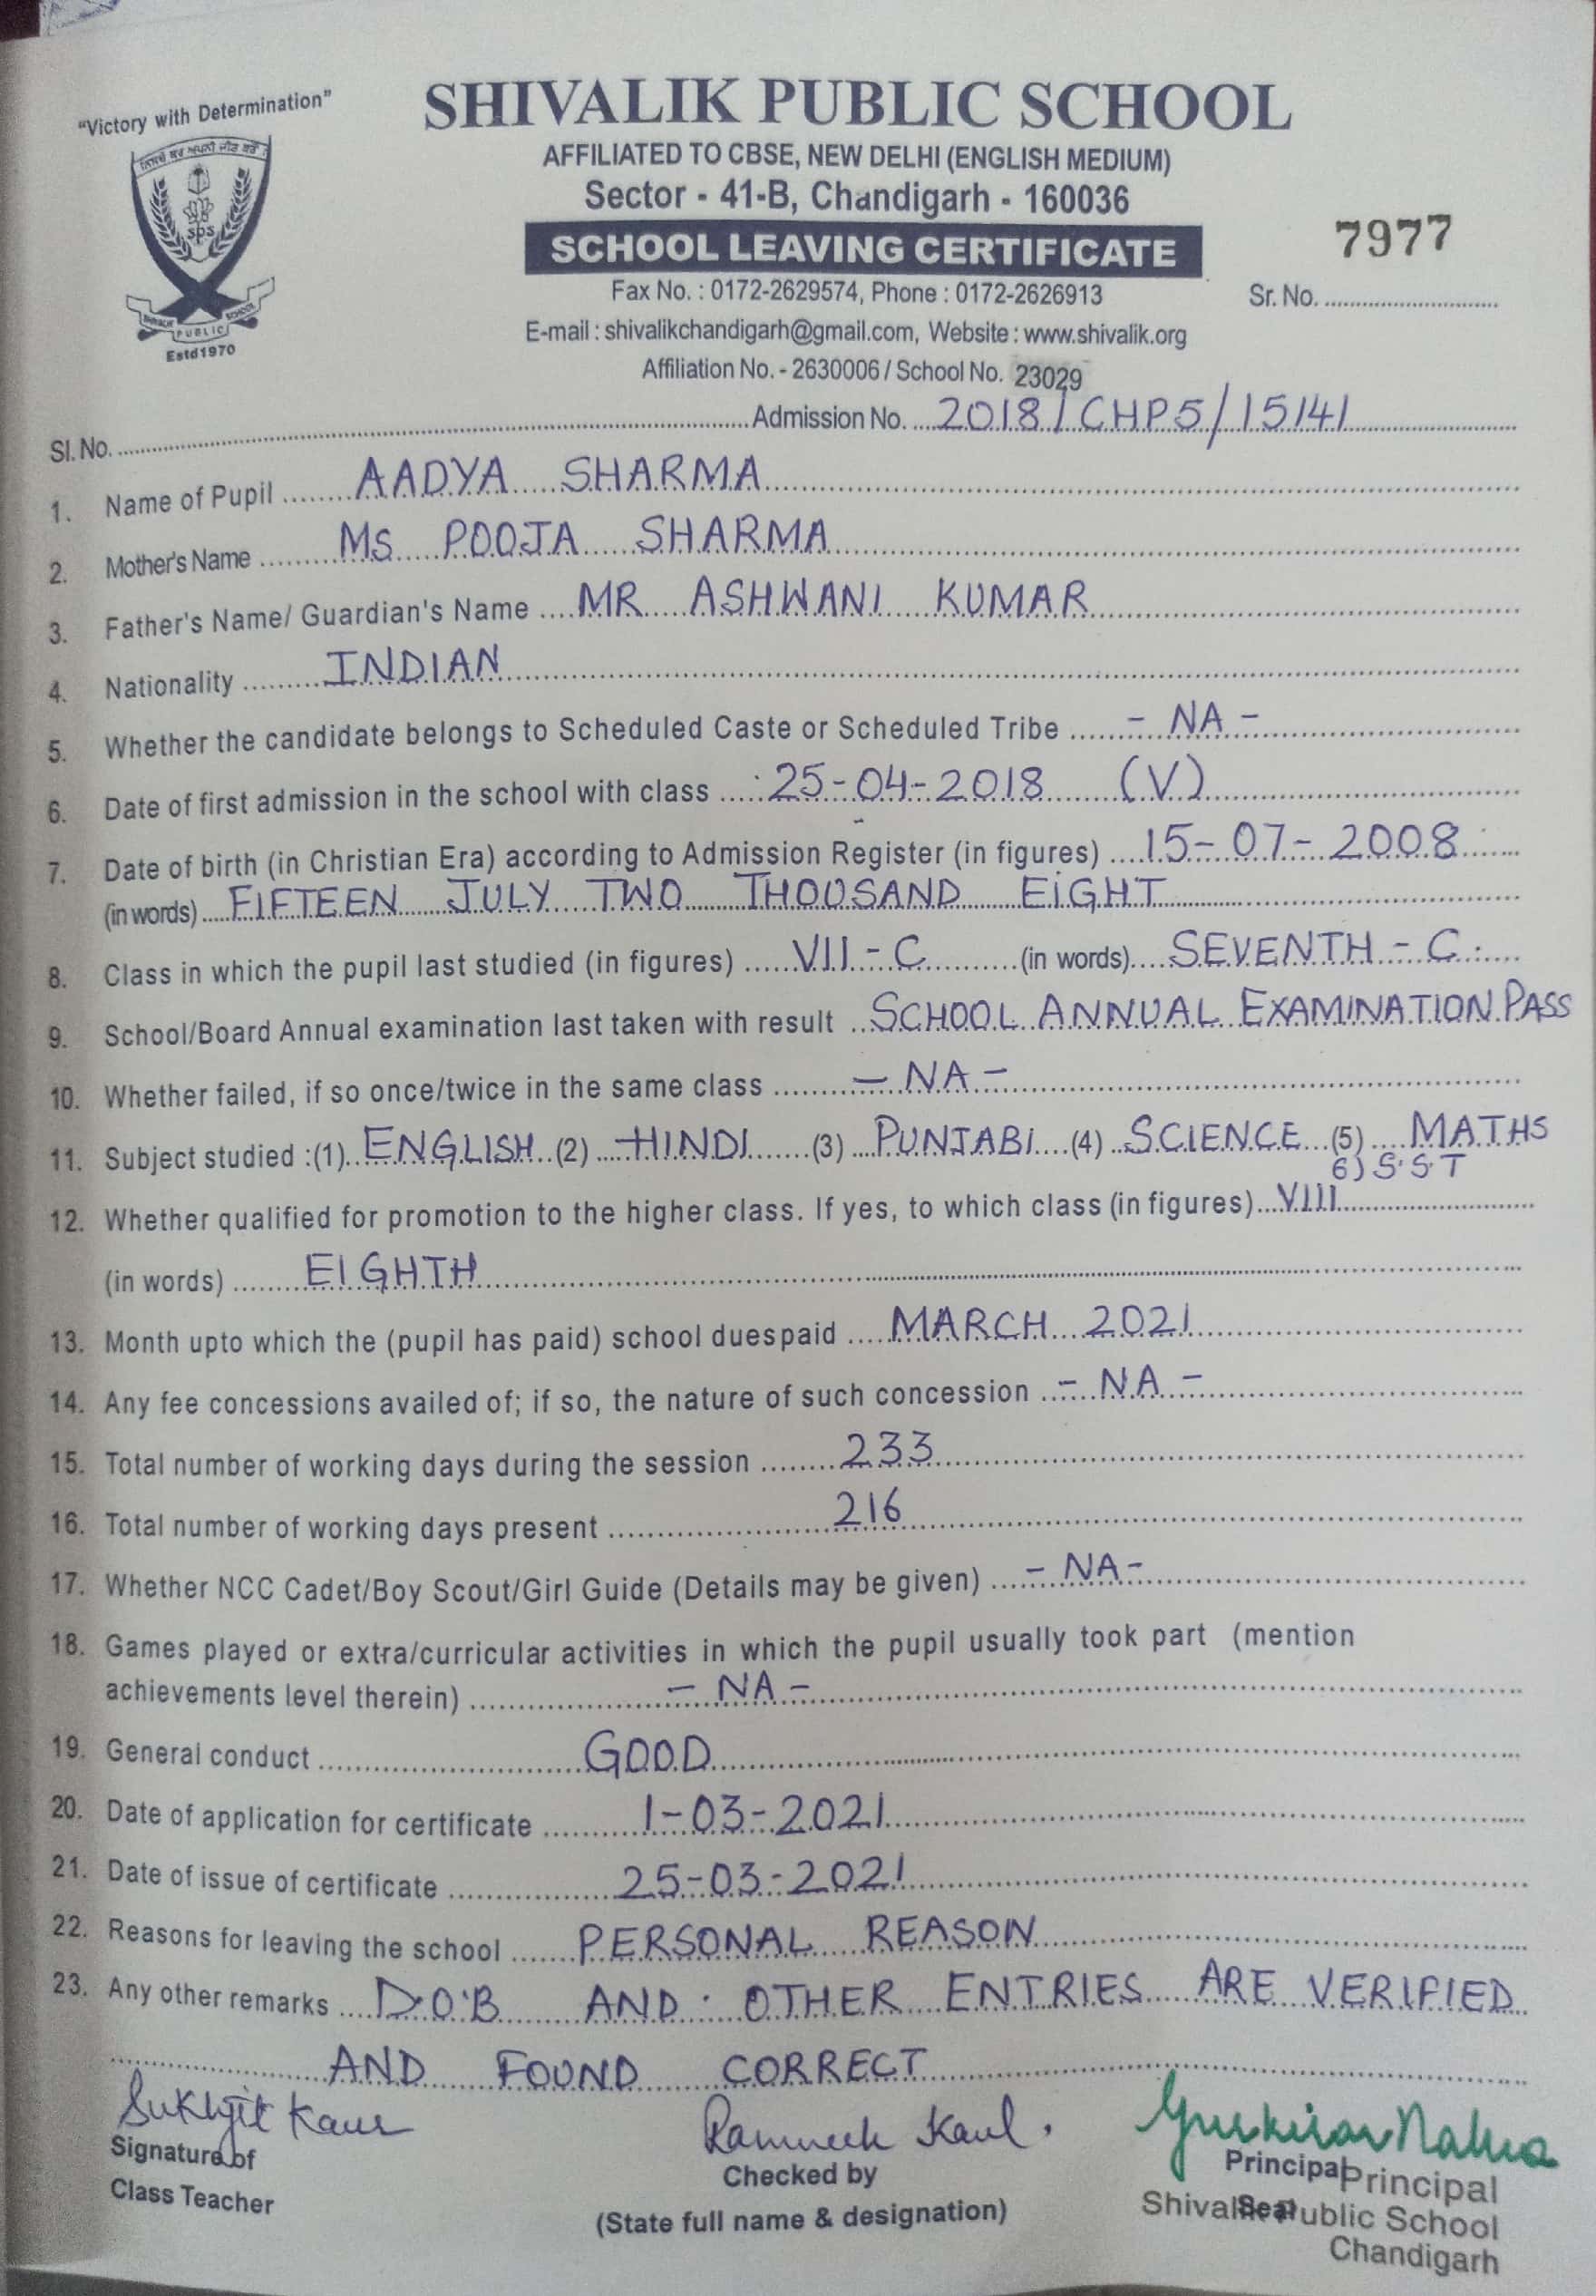 "Victory with Determination"
SHIVALIK PUBLIC SCHOOL
AFFILIATED TO CBSE, NEW DELHI (ENGLISH MEDIUM)
Sector - 41-B, Chandigarh - 160036
SCHOOL LEAVING CERTIFICATE
7977
Fax No. : 0172-2629574, Phone : 0172-2626913
Sr. No.
E-mail : shivalikchandigarh@gmail.com, Website : www.shivalik.org
SPS
PUBLIC
Estd 1970
Affiliation No. - 2630006 / School No. 23029
Sl. No. Admission No. 2018/CHP5/15141
1. Name of Pupil AADYA SHARMA
2. Mother's Name MS POOJA SHARMA
3. Father's Name/ Guardian's Name MR ASHWANI KUMAR
4. Nationality INDIAN
5. Whether the candidate belongs to Scheduled Caste or Scheduled Tribe - NA -
6. Date of first admission in the school with class 25-04-2018 (V)
7. Date of birth (in Christian Era) according to Admission Register (in figures) 15-07-2008
(in words) FIFTEEN JULY TWO THOUSAND EIGHT
8. Class in which the pupil last studied (in figures) VII - C (in words) SEVENTH - C
9. School/Board Annual examination last taken with result SCHOOL ANNUAL EXAMINATION PASS
10. Whether failed, if so once/twice in the same class - NA -
11. Subject studied :(1) ENGLISH (2) HINDI (3) PUNJABI (4) SCIENCE (5) MATHS
6) S.S.T
12. Whether qualified for promotion to the higher class. If yes, to which class (in figures) VIII
(in words) EIGHTH
13. Month upto which the (pupil has paid) school duespaid MARCH 2021
14. Any fee concessions availed of; if so, the nature of such concession - NA -
15. Total number of working days during the session 233
16. Total number of working days present 216
17. Whether NCC Cadet/Boy Scout/Girl Guide (Details may be given) - NA -
18. Games played or extra/curricular activities in which the pupil usually took part (mention
achievements level therein) - NA -
19. General conduct GOOD
20. Date of application for certificate 1-03-2021
21. Date of issue of certificate 25-03-2021
22. Reasons for leaving the school PERSONAL REASON
23. Any other remarks D.O.B AND OTHER ENTRIES ARE VERIFIED
AND FOUND CORRECT
Sukhjit Kaur
Signature of
Class Teacher
Kaul.
Checked by
(State full name & designation)
Principal
Seal
Principal
Shivalik Public School
Chandigarh